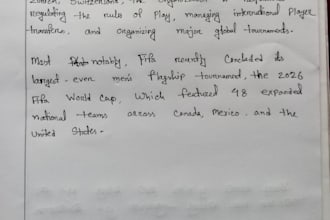 Zurich, Switzerland, the organization is
regulating the rules of Play, managing international Player
transfers, and organizing major global tournaments.
Most notably, Fifa recently Concluded its
largest-ever men's flagship tournament, the 2026
Fifa World Cup, Which featured 48 expanded
national teams across Canada, Mexico, and the
United States.